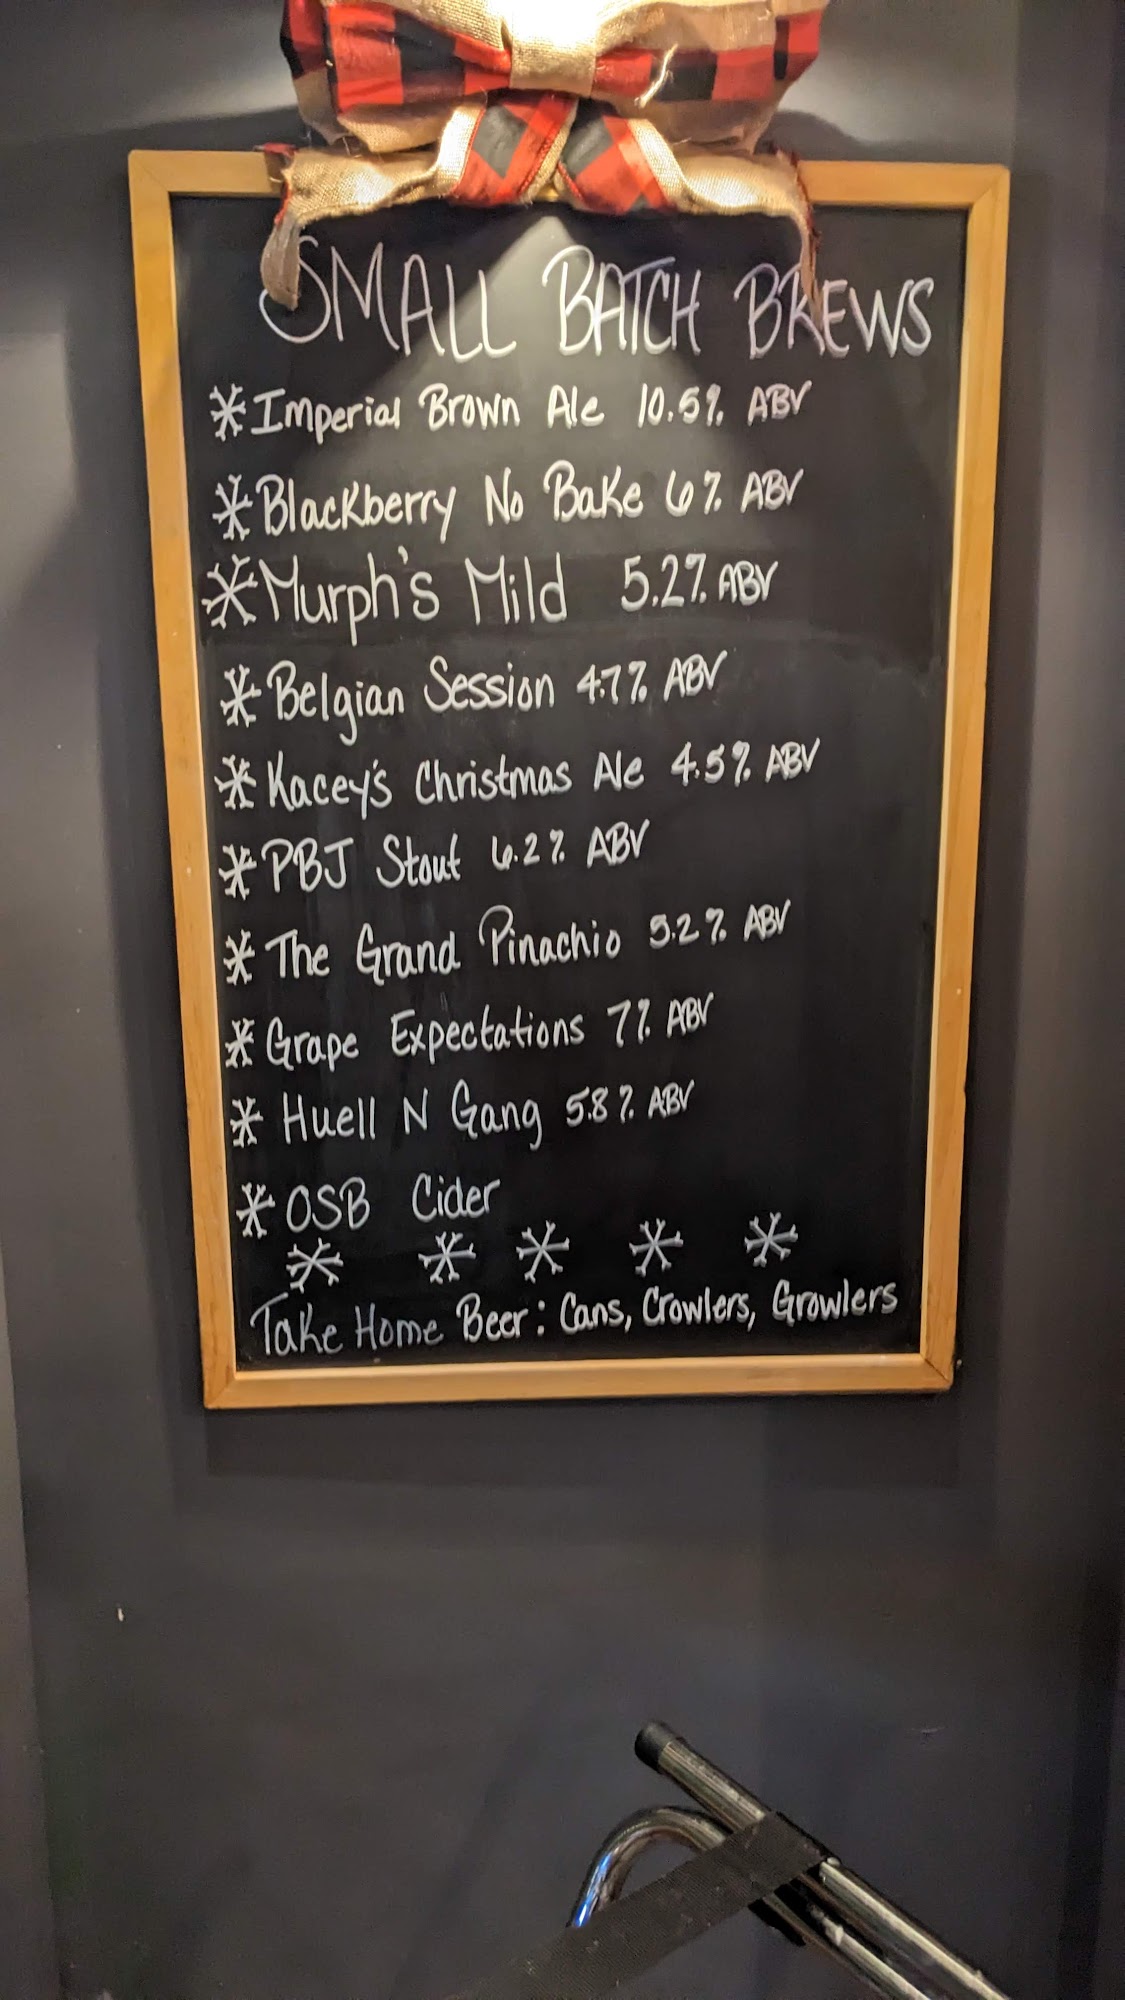 SMALL BATCH BREWS
Imperial Brown Ale 10.5% ABV
Blackberry No Bake 6% ABV
Murph's Mild 5.2% ABV
Belgian Session 4.7% ABV
Kacey's Christmas Ale 4.5% ABV
PBJ Stout 6.2% ABV
The Grand Pinachio 5.2% ABV
Grape Expectations 7% ABV
Huell N Gang 5.8% ABV
OSB Cider
Take Home Beer: Cans, Crowlers, Growlers